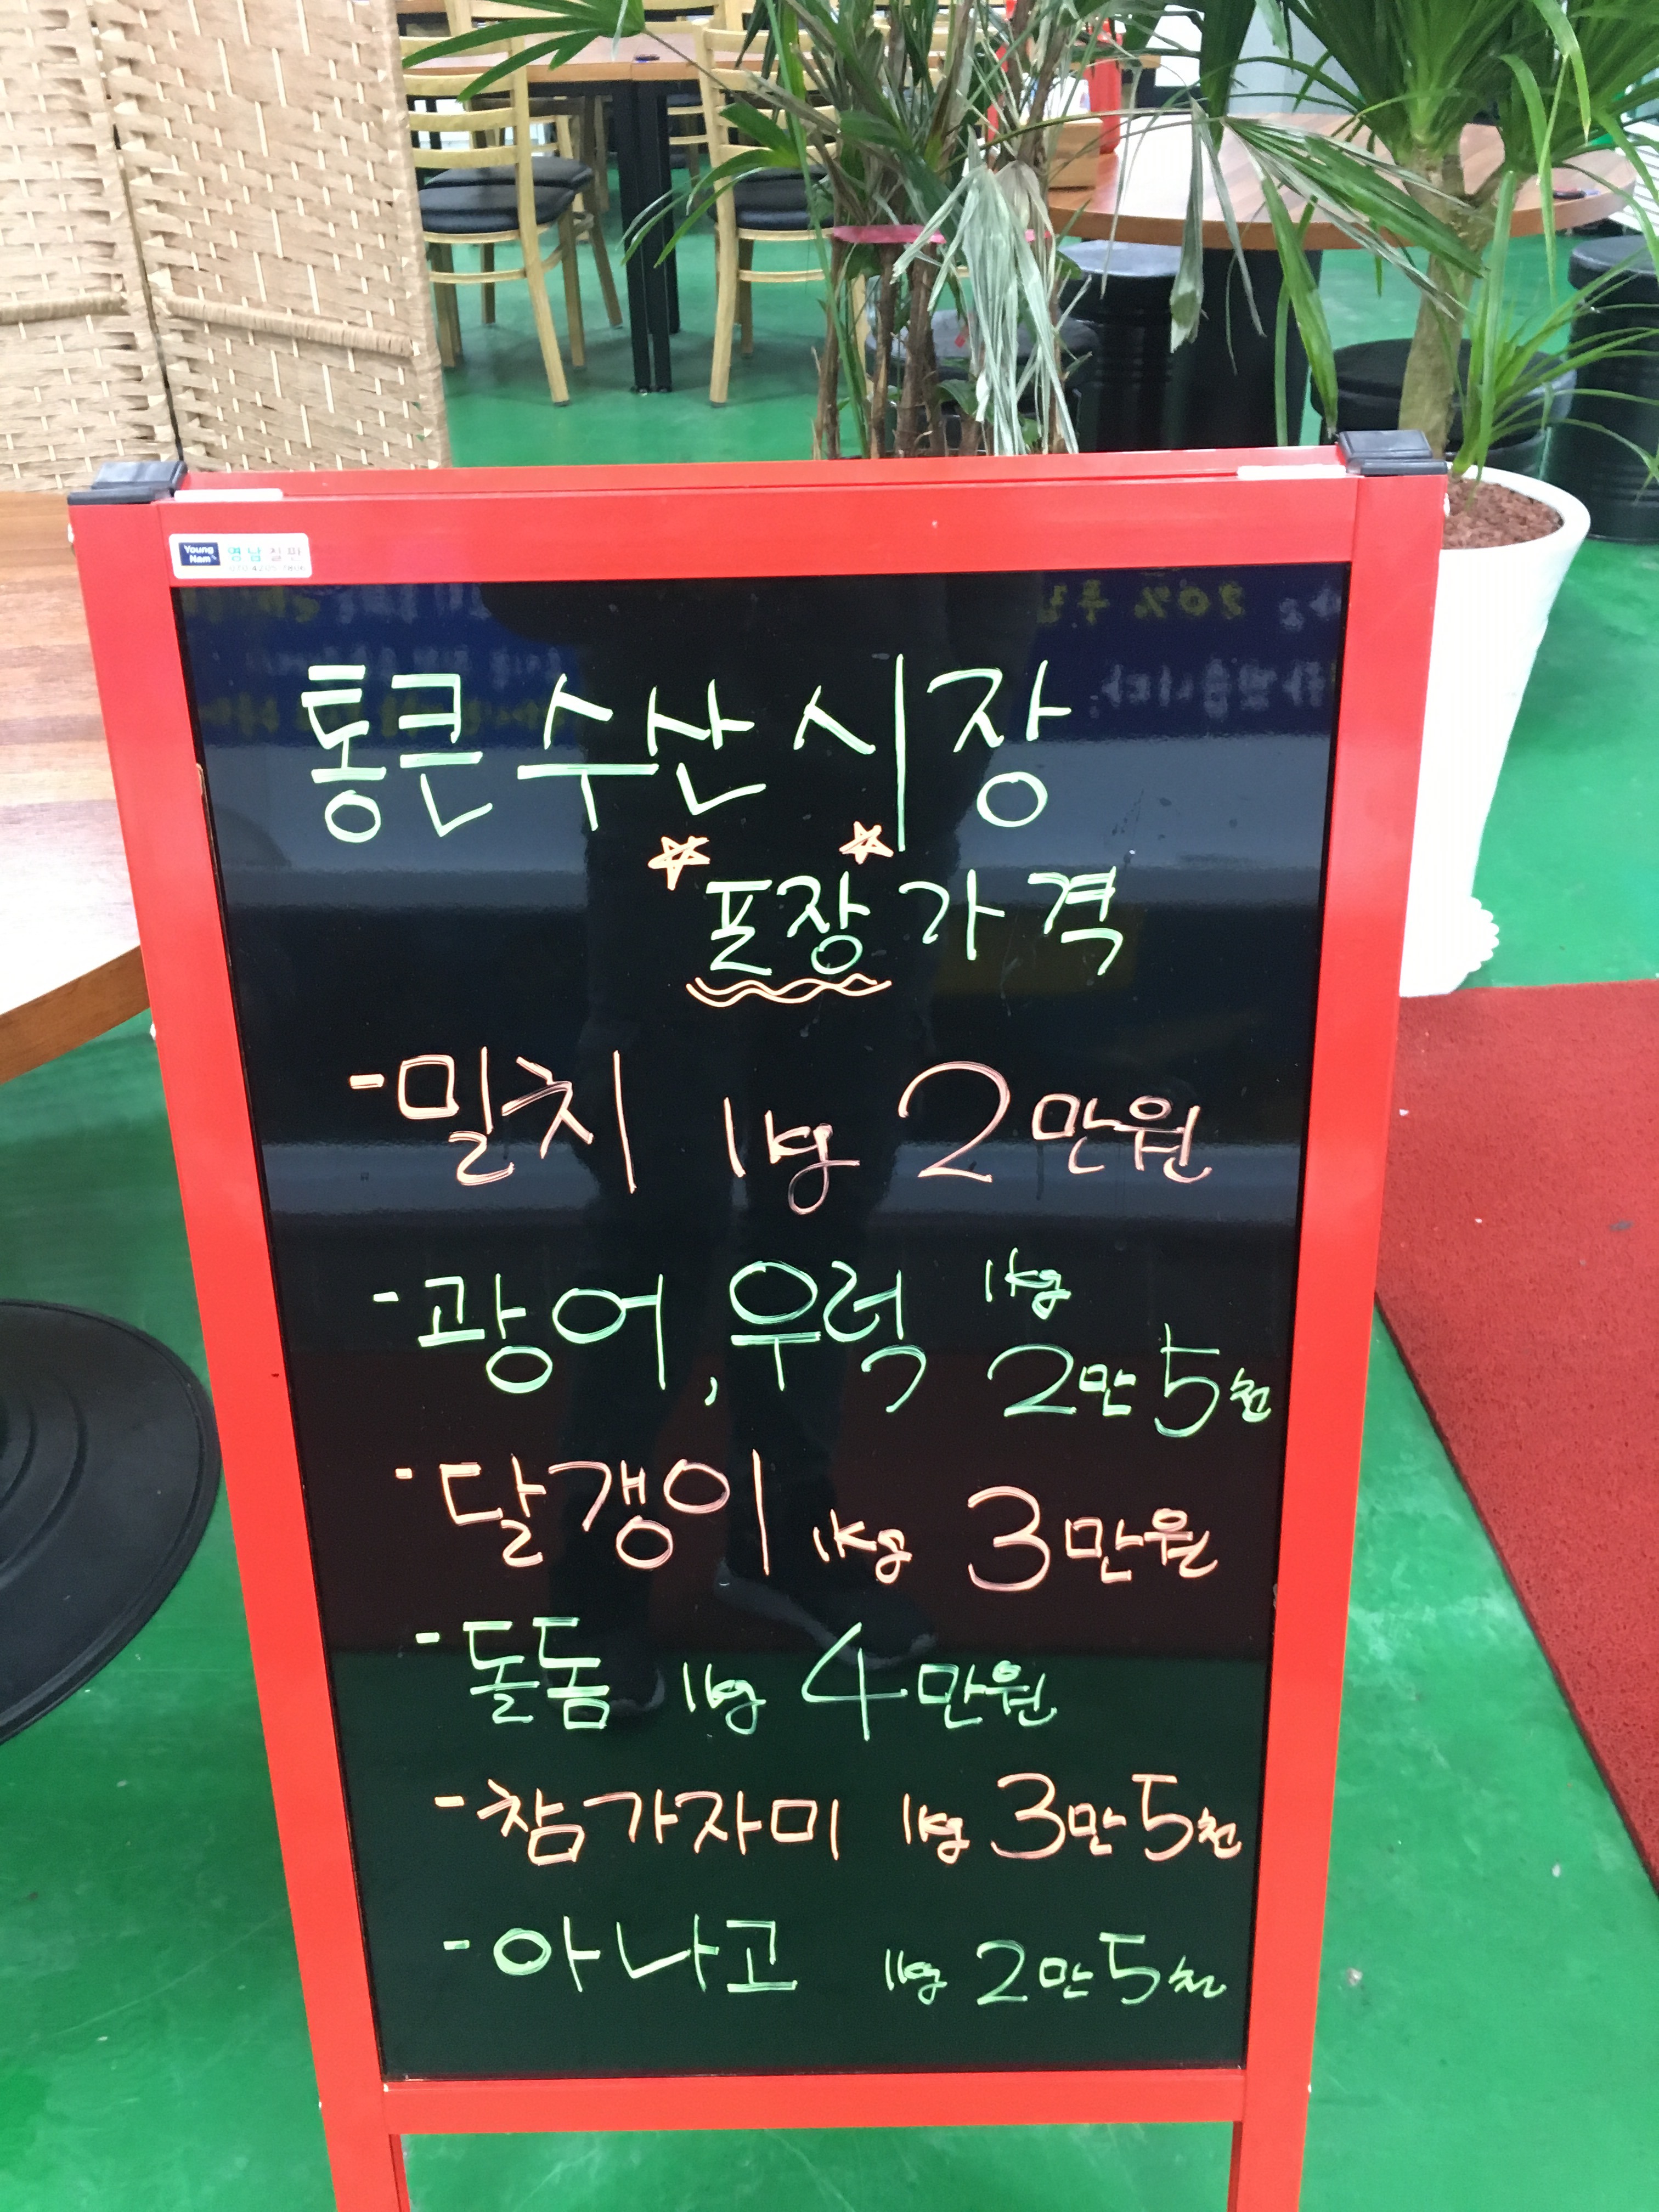 Young Nam
영남칠판
통큰수산시장
포장가격
-밀치 1kg 2만원
-광어,우럭 1kg 2만5천
-달갱이 1kg 3만원
-돌돔 1kg 4만원
-참가자미 1kg 3만5천
-아나고 1kg 2만5천